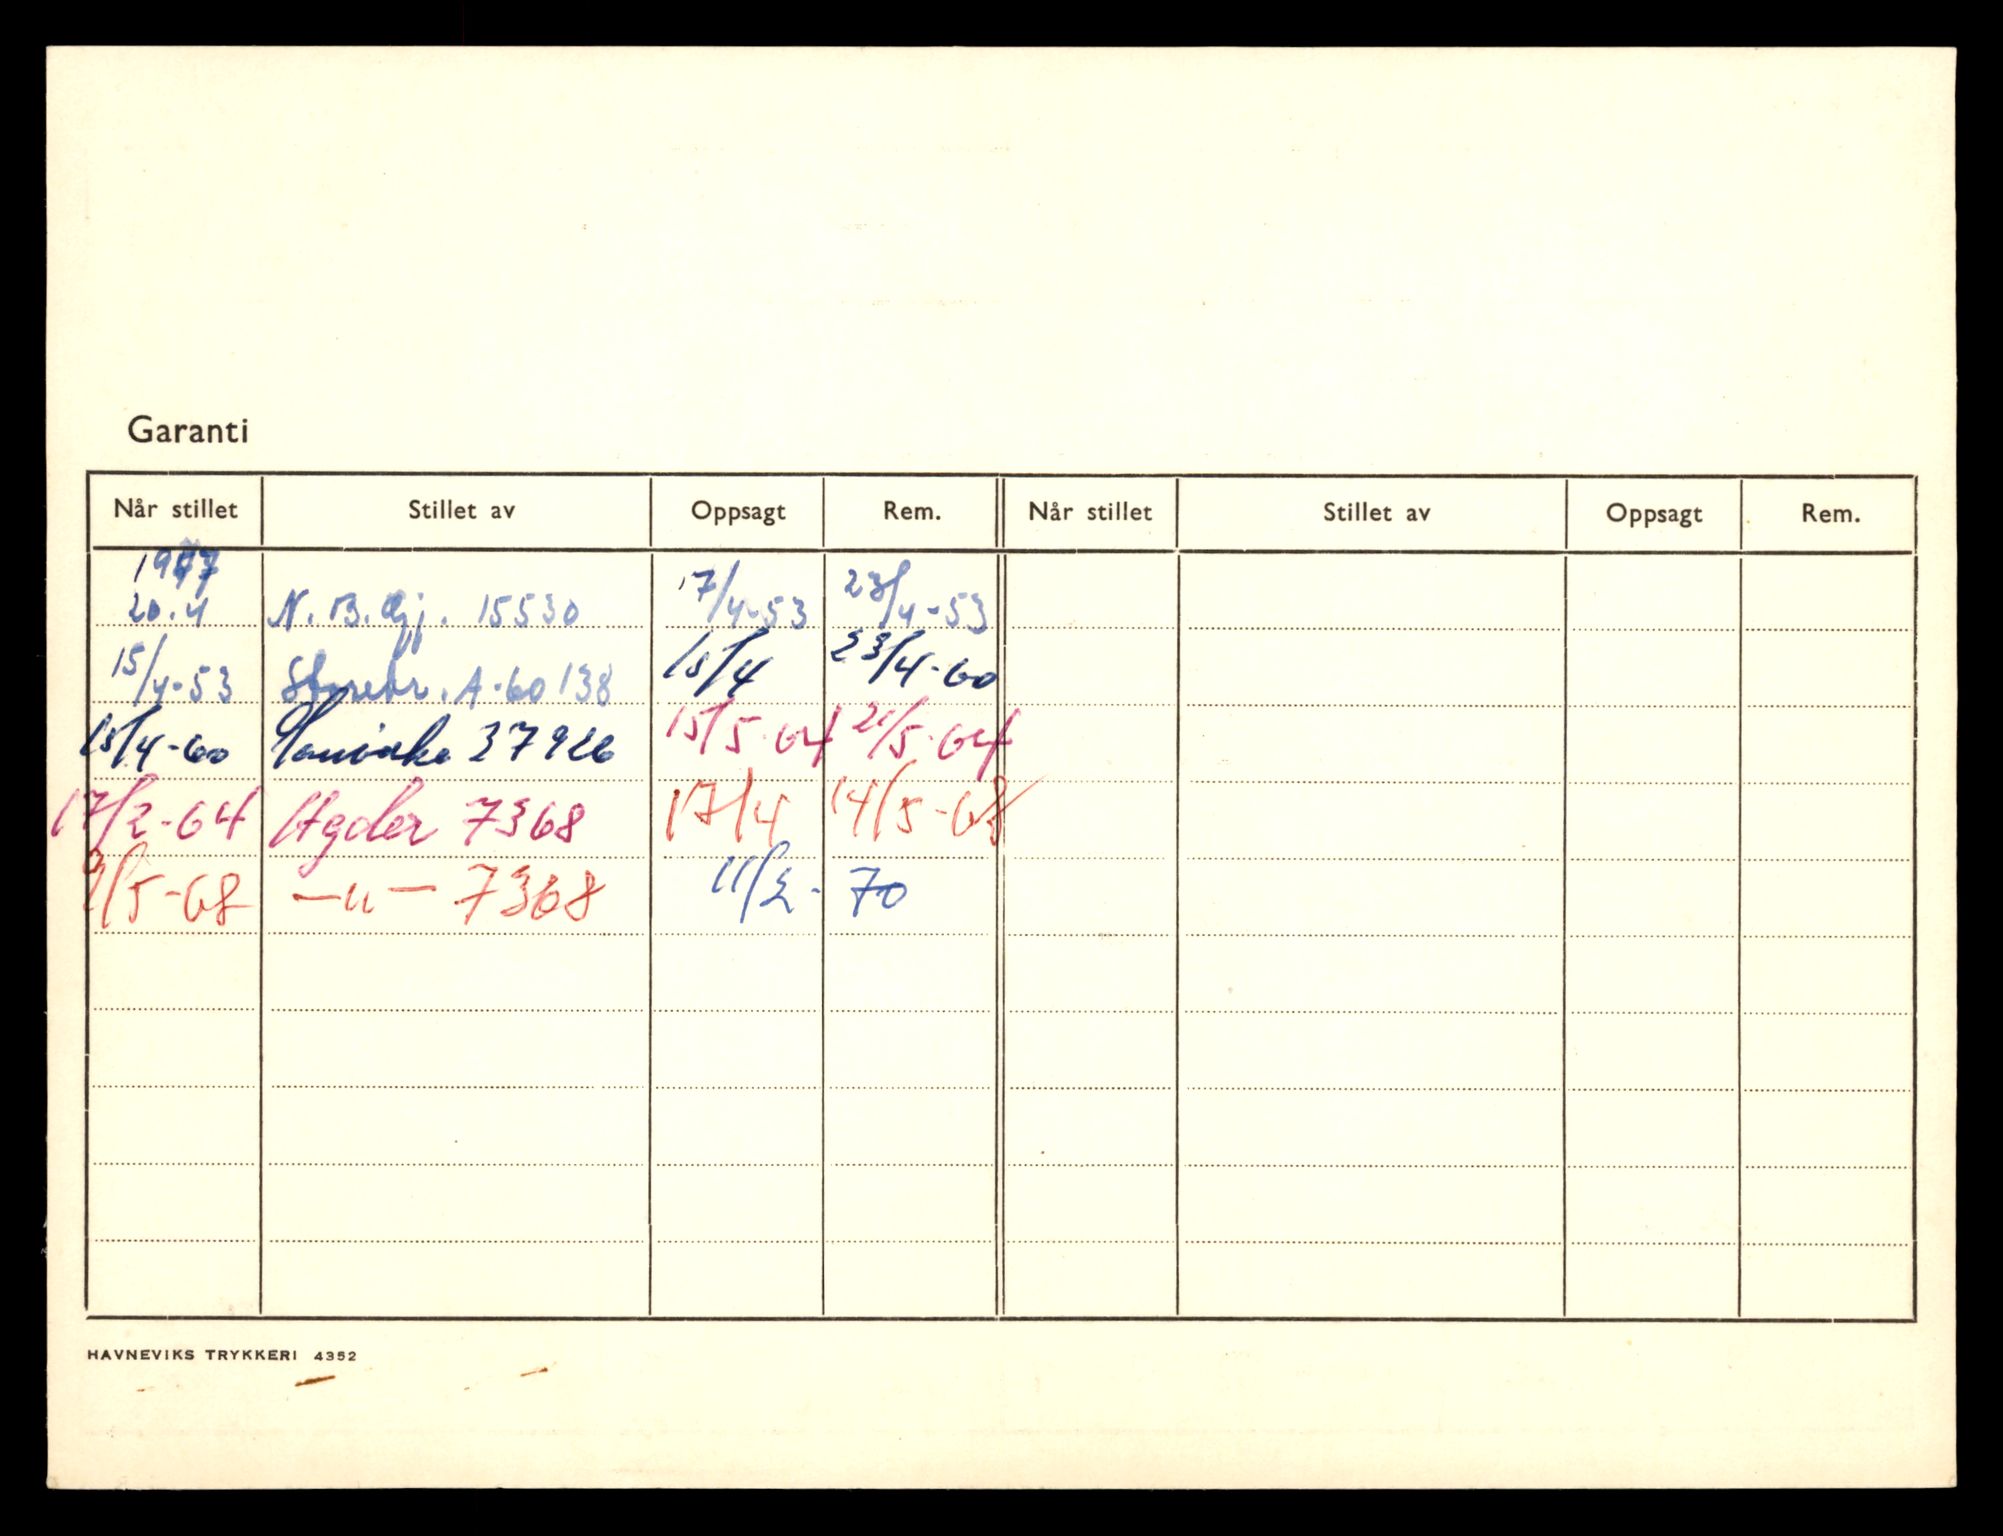 Garanti
Når stillet Stillet av Oppsagt Rem. Når stillet Stillet av Oppsagt Rem.
1947
20.4 N. B. Gj. 15530 17/4-53 23/4-53
15/4-53 Storebr. A-60138 15/4 23/4-60
15/4-60 37926 15/5-64 21/5-64
17/2-64 Agder 7368 17/4 14/5-68
9/5-68 —u— 7368 11/2-70
HAVNEVIKS TRYKKERI 4352